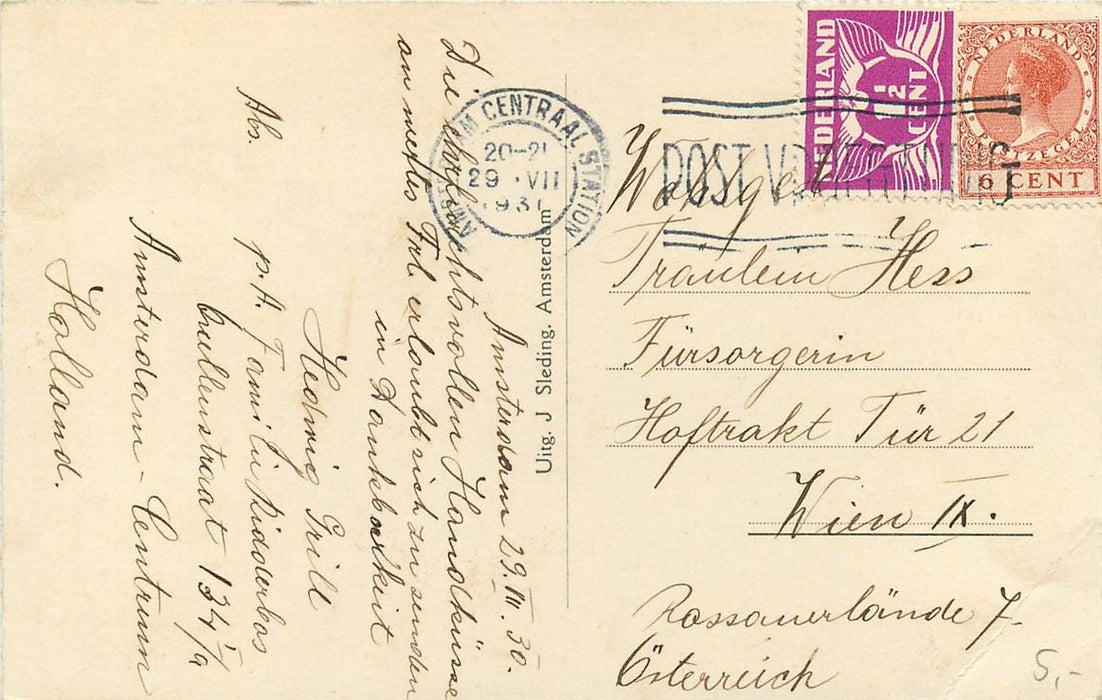 NEDERLAND
1½ CENT
NEDERLAND
POSTZEGEL
6 CENT
AMSTERDAM CENTRAAL STATION
20-21
29 VII
193
POST V
Uitg. J Sleding, Amsterdam
Amsterdam 29. VII. 30.
Die ehrfurchtsvollen Handküsse
an wertes Frl erlaubt sich zu senden
in Dankbarkeit
Hedwig Grill
Abs.
p. A. Familie Ridderbos
straat 134/a
Amsterdam-Centrum
Holland.
Wohlgeb
Fräulein Hess
Fürsorgerin
Hoftrakt Tür 21
Wien IX.
Rossauerlände 7.
Österreich
5,-